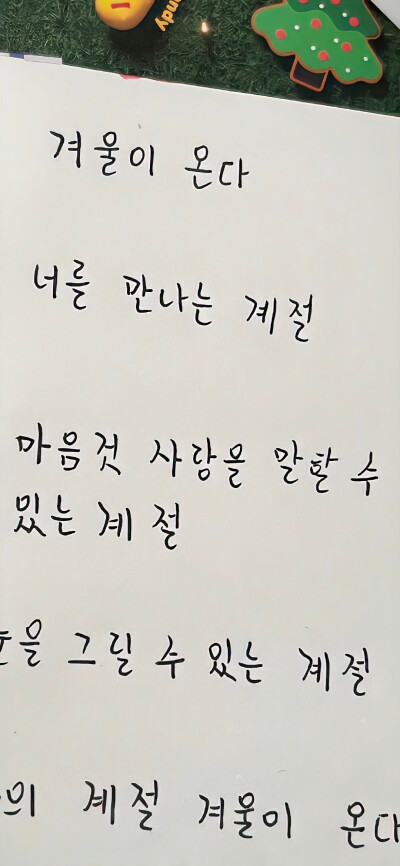 ndy
겨울이 온다
너를 만나는 계절
마음껏 사랑을 말할 수
있는 계절
그릴 수 있는 계절
계절 겨울이 온다